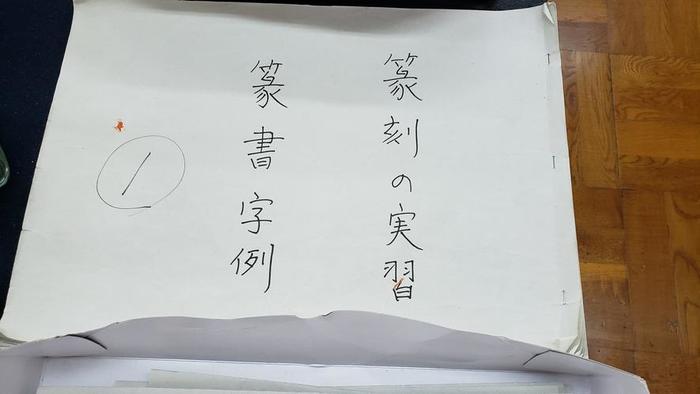 篆刻の実習
篆書字例
1